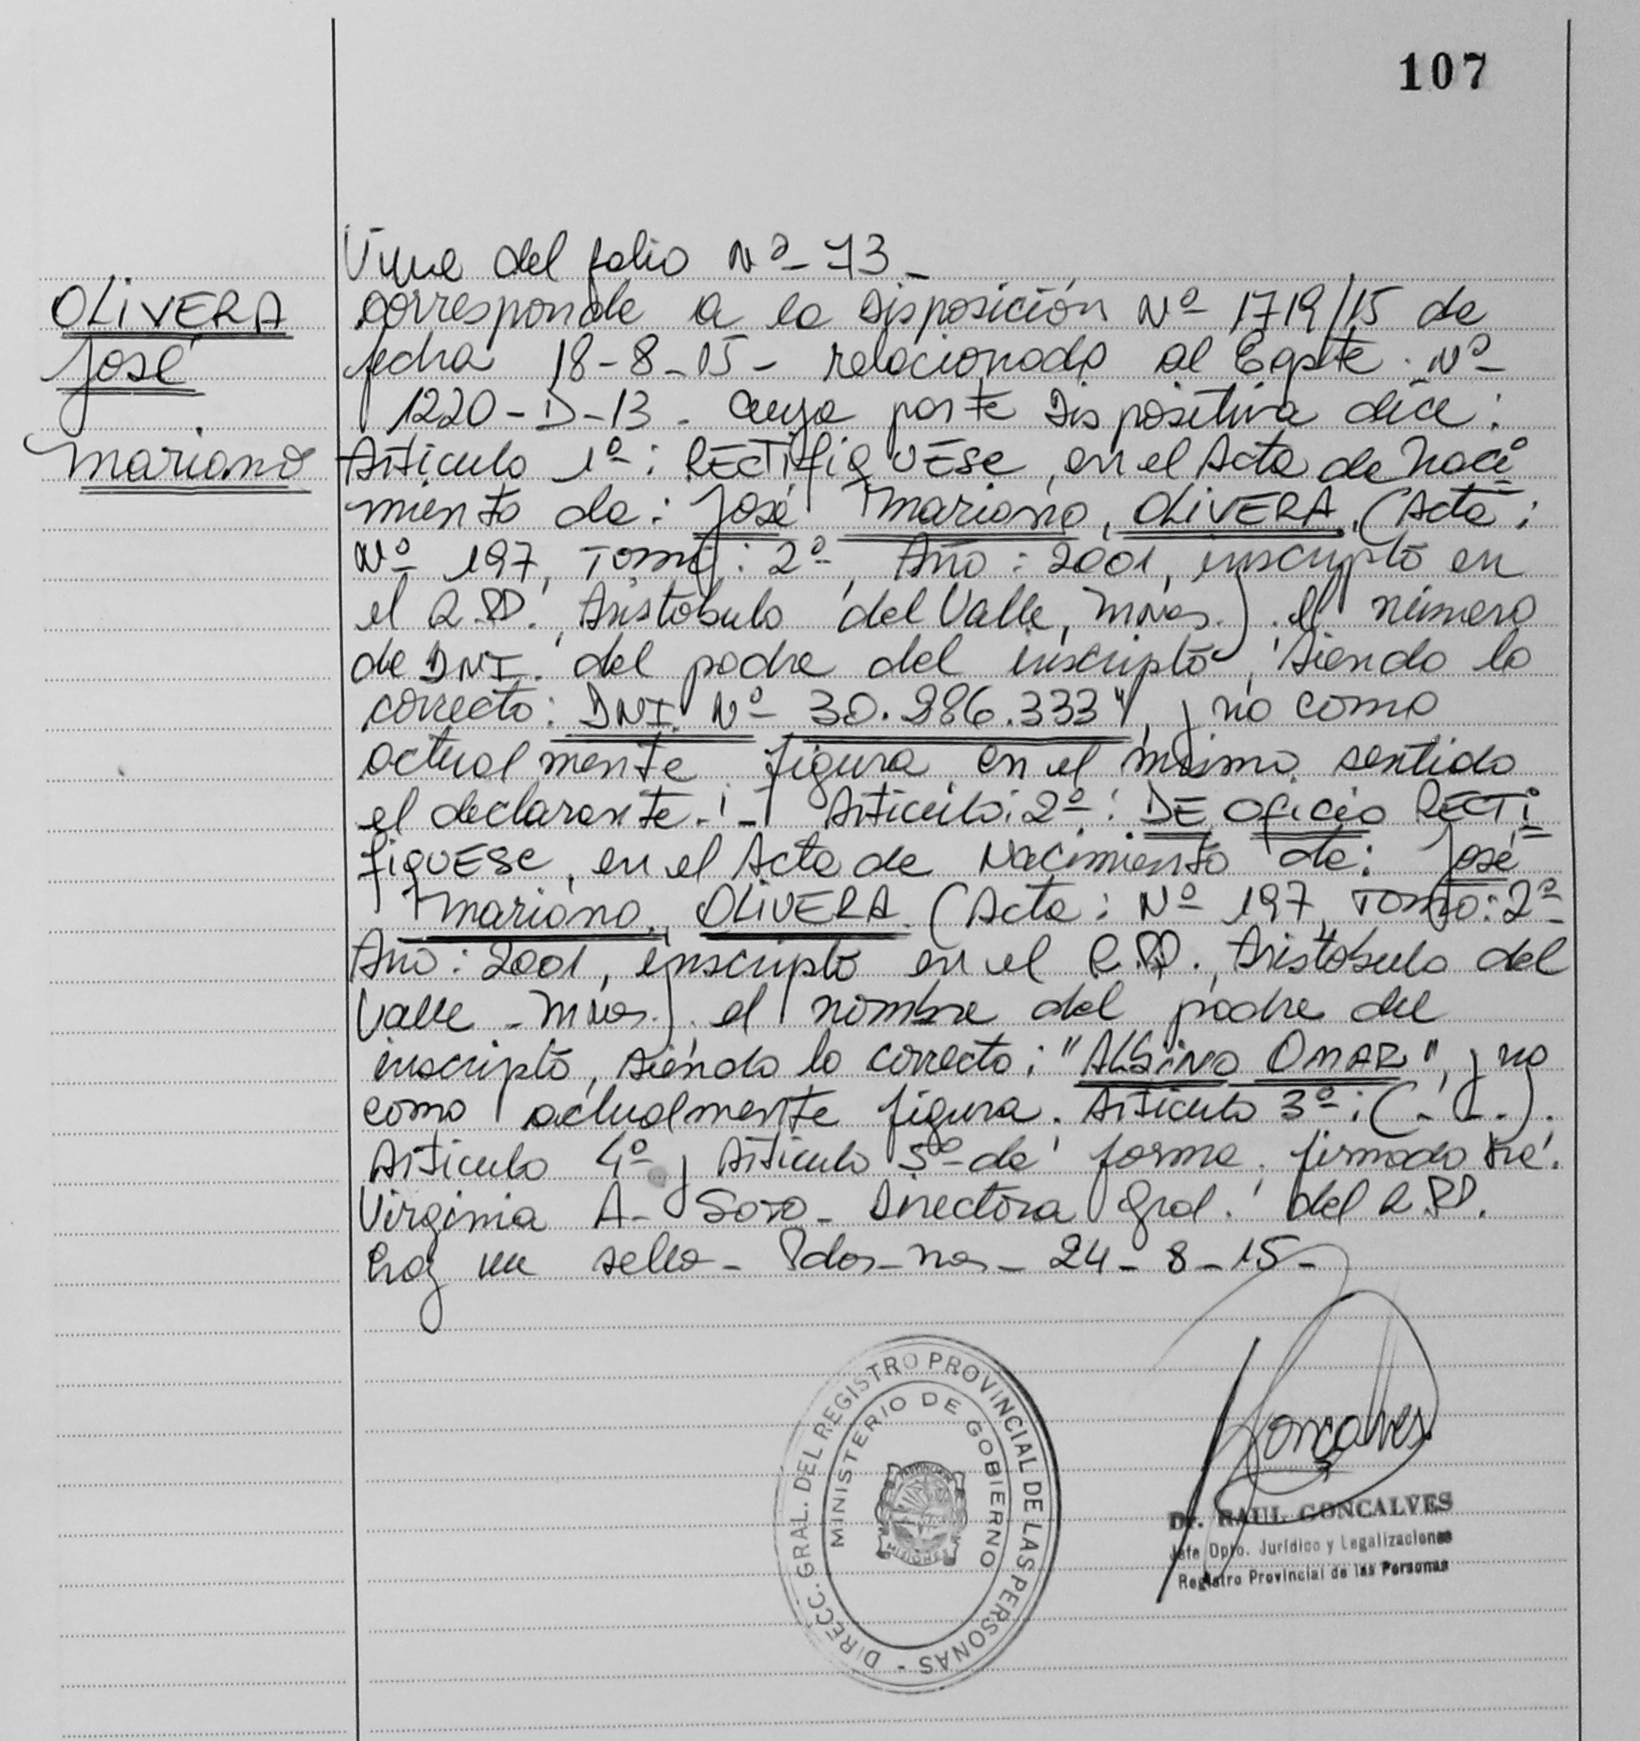 107
Viene del folio Nº- 73-
OLiVERA
José
Mariano
corresponde a la Disposición Nº 1719/15 de
fecha 18-8-15- relacionada al Expte. Nº-
1220-D-13- cuya parte Dispositiva dice:
Artículo 1º: RECTifiQUESE, en el Acta de Naci
miento de: José Mariano, OLiVERA, (Acta:
Nº 197, Tomo: 2º, Año: 2001, inscripto en
el R.P.P., Aristóbulo del Valle, Mnes.). el número
de DNI. del padre del inscripto, siendo lo
correcto: DNI. Nº 30.986.333", y no como
actualmente figura, en el mismo sentido
el declarante.- Artículo: 2º: DE Oficio RECTi
fiQUESE, en el Acta de Nacimiento de: José
Mariano, OLiVERA. (Acta: Nº 197, Tomo: 2º
Año: 2001, inscripto en el R.P.P., Aristóbulo del
Valle - Mnes.). el nombre del padre del
inscripto, siendo lo correcto: "ALSiNO OMAR", y no
como actualmente figura. Artículo 3º: (-.-.).
Artículo 4º y Artículo 5º de forma. firmado
Virginia A- Soto- Directora Gral. del R.P.P.
hay un sello- Pdas-Mnes- 24-8-15-
DIRECC. GRAL. DEL REGISTRO PROVINCIAL DE LAS PERSONAS -
MINISTERIO DE GOBIERNO
MISIONES
Gonçalves
Dr. RAUL GONCALVES
Jefe Dpto. Jurídico y Legalizaciones
Registro Provincial de las Personas